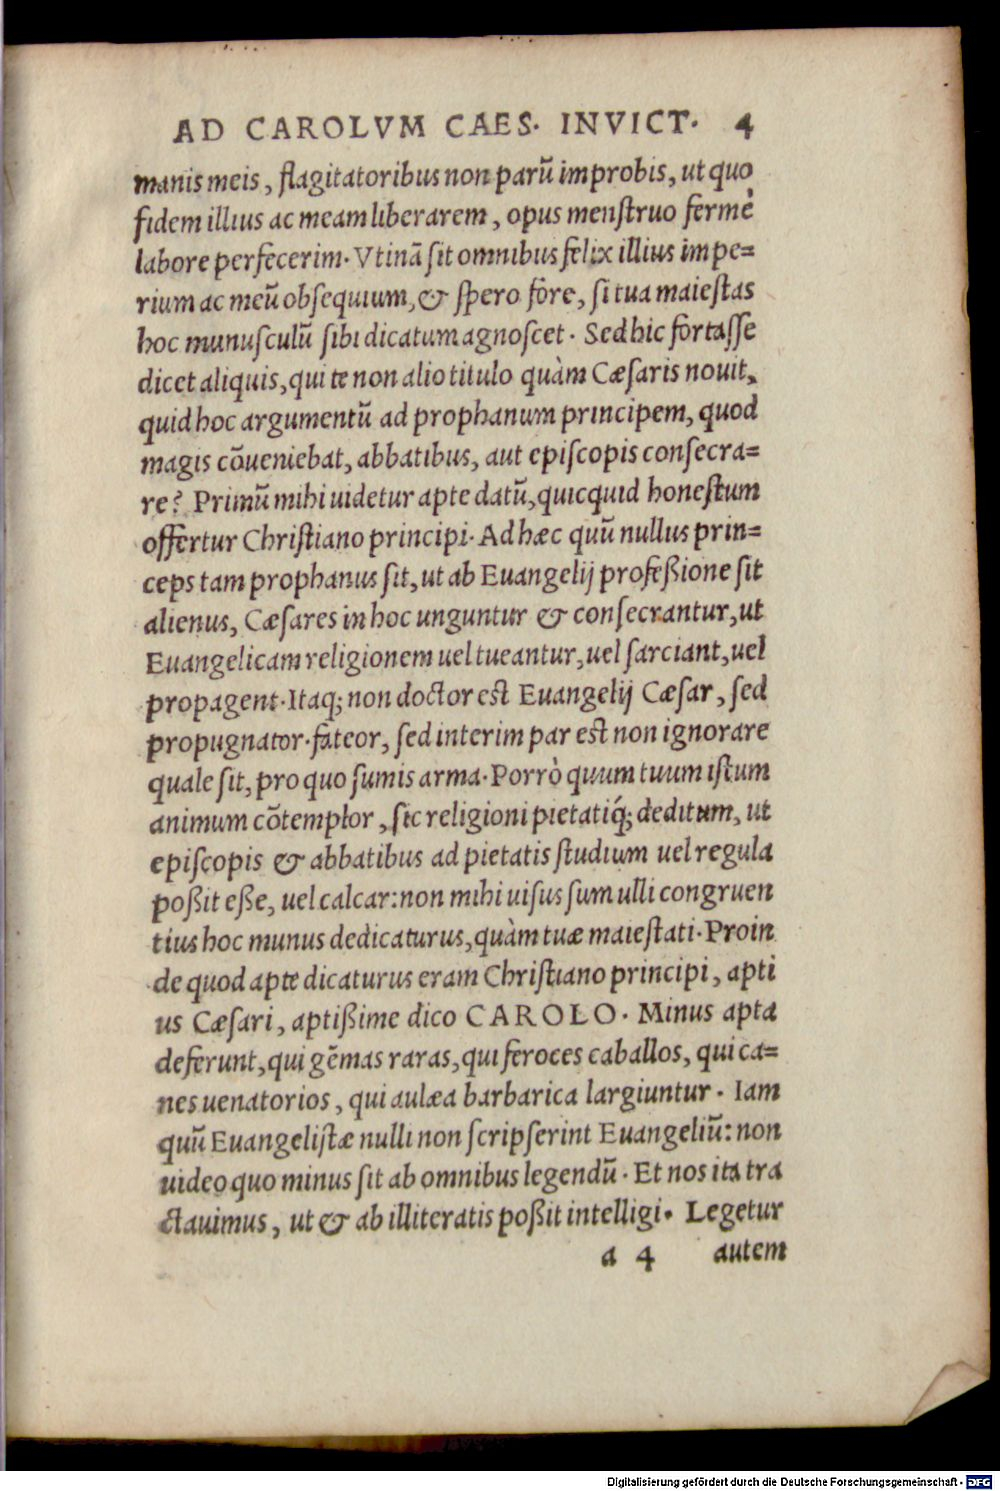 AD CAROLVM CAES. INVICT. 4
manis meis, flagitatoribus non parũ improbis, ut quo
fidem illius ac meam liberarem, opus menstruo fermè
labore perfecerim. Vtinã sit omnibus felix illius impe=
rium ac meũ obsequium, & spero fore, si tua maiestas
hoc munusculũ sibi dicatum agnoscet. Sed hic fortasse
dicet aliquis, qui te non alio titulo quàm Cæsaris nouit,
quid hoc argumentũ ad prophanum principem, quod
magis cõueniebat, abbatibus, aut episcopis consecra=
re? Primũ mihi uidetur apte datũ, quicquid honestum
offertur Christiano principi. Ad hæc quũ nullus prin=
ceps tam prophanus sit, ut ab Euangelij profeßione sit
alienus, Cæsares in hoc unguntur & consecrantur, ut
Euangelicam religionem uel tueantur, uel sarciant, uel
propagent. Itaq; non doctor est Euangelij Cæsar, sed
propugnator. fateor, sed interim par est non ignorare
quale sit, pro quo sumis arma. Porrò quum tuum istum
animum cõtemplor, sic religioni pietatiq́; deditum, ut
episcopis & abbatibus ad pietatis studium uel regula
poßit eße, uel calcar: non mihi uisus sum ulli congruen
tius hoc munus dedicaturus, quàm tuæ maiestati. Proin
de quod apte dicaturus eram Christiano principi, apti
us Cæsari, aptißime dico CAROLO. Minus apta
deferunt, qui gẽmas raras, qui feroces caballos, qui ca=
nes uenatorios, qui aulæa barbarica largiuntur. Iam
quũ Euangelistæ nulli non scripserint Euangeliũ: non
uideo quo minus sit ab omnibus legendũ. Et nos ita tra
ctauimus, ut & ab illiteratis poßit intelligi. Legetur
a 4 autem
Digitalisierung gefördert durch die Deutsche Forschungsgemeinschaft - DFG